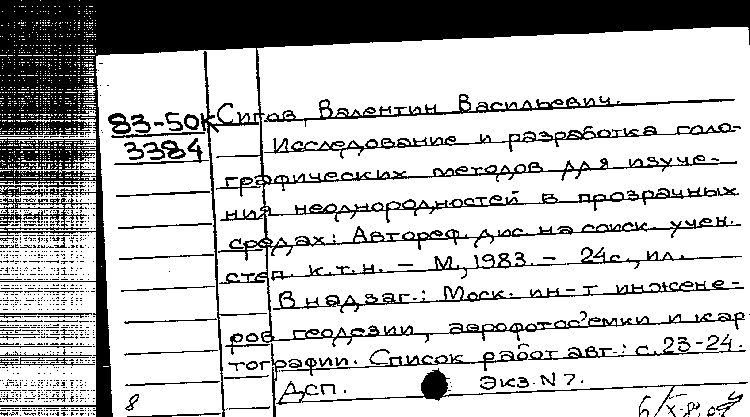 83-50К Сигов, Валентин Васильевич.
3384 Исследование и разработка голо-
графических методов для изуче-
ния неоднородностей в прозрачных
средах: Автореф. дис. на соиск. учен.
степ. к.т.н. – М., 1983. – 24с., ил.
В надзаг.: Моск. ин-т инжене-
ров геодезии, аэрофотосъемки и кар-
тографии. Список работ авт.: с. 23-24.
Дсп. Экз. N 7.
8